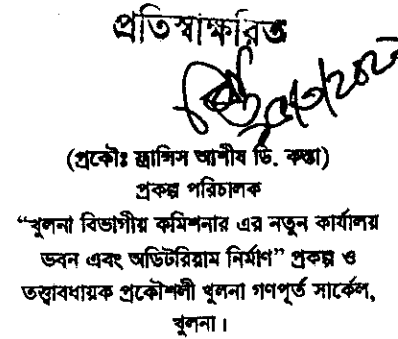 প্রতিস্বাক্ষরিত
(প্রকৌঃ ফ্রান্সিস আশীষ ডি. কস্তা)
প্রকল্প পরিচালক
“খুলনা বিভাগীয় কমিশনার এর নতুন কার্যালয়
ভবন এবং অডিটরিয়াম নির্মাণ” প্রকল্প ও
তত্ত্বাবধায়ক প্রকৌশলী খুলনা গণপূর্ত সার্কেল,
খুলনা।